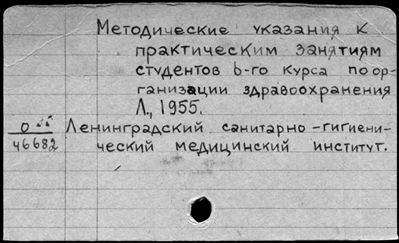 Методические указания к
практическим занятиям
студентов 6-го курса по ор-
ганизации здравоохранения
Л., 1955.
Ленинградский санитарно-гигиени-
46682 ческий медицинский институт.